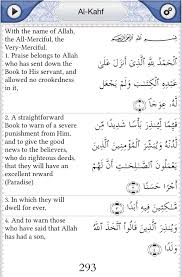 Al-Kahf
With the name of Allah,
the All-Merciful, the
Very-Merciful.
1. Praise belongs to Allah
who has sent down the
Book to His servant, and
allowed no crookedness
in it,
الْحَمْدُ لِلَّهِ الَّذِي أَنزَلَ عَلَىٰ
عَبْدِهِ الْكِتَابَ وَلَمْ يَجْعَل
لَّهُ عِوَجًا ۝١
2. A straightforward
Book to warn of a severe
punishment from Him,
and to give the good
news to the believers,
who do righteous deeds,
that they will have an
excellent reward
(Paradise)
قَيِّمًا لِّيُنذِرَ بَأْسًا شَدِيدًا مِّن
لَّدُنْهُ وَيُبَشِّرَ الْمُؤْمِنِينَ الَّذِينَ
يَعْمَلُونَ الصَّالِحَاتِ أَنَّ لَهُمْ
أَجْرًا حَسَنًا ۝٢
3. In which they will
dwell for ever,
مَّاكِثِينَ فِيهِ أَبَدًا ۝٣
4. And to warn those
who have said that Allah
has had a son,
وَيُنذِرَ الَّذِينَ قَالُوا اتَّخَذَ اللَّهُ
وَلَدًا ۝٤
293